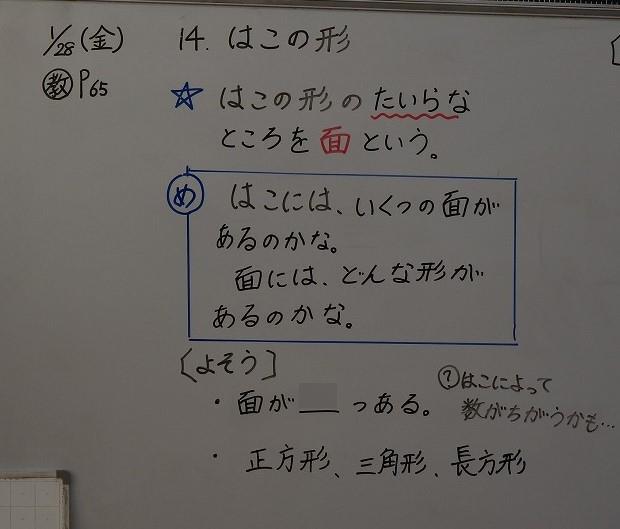 1/28(金)
14. はこの形
教 P65
☆ はこの形のたいらな
ところを面という。
め はこには、いくつの面が
あるのかな。
面には、どんな形が
あるのかな。
[よそう]
・面が＿＿っある。
? はこによって
数がちがうかも…
・正方形、三角形、長方形